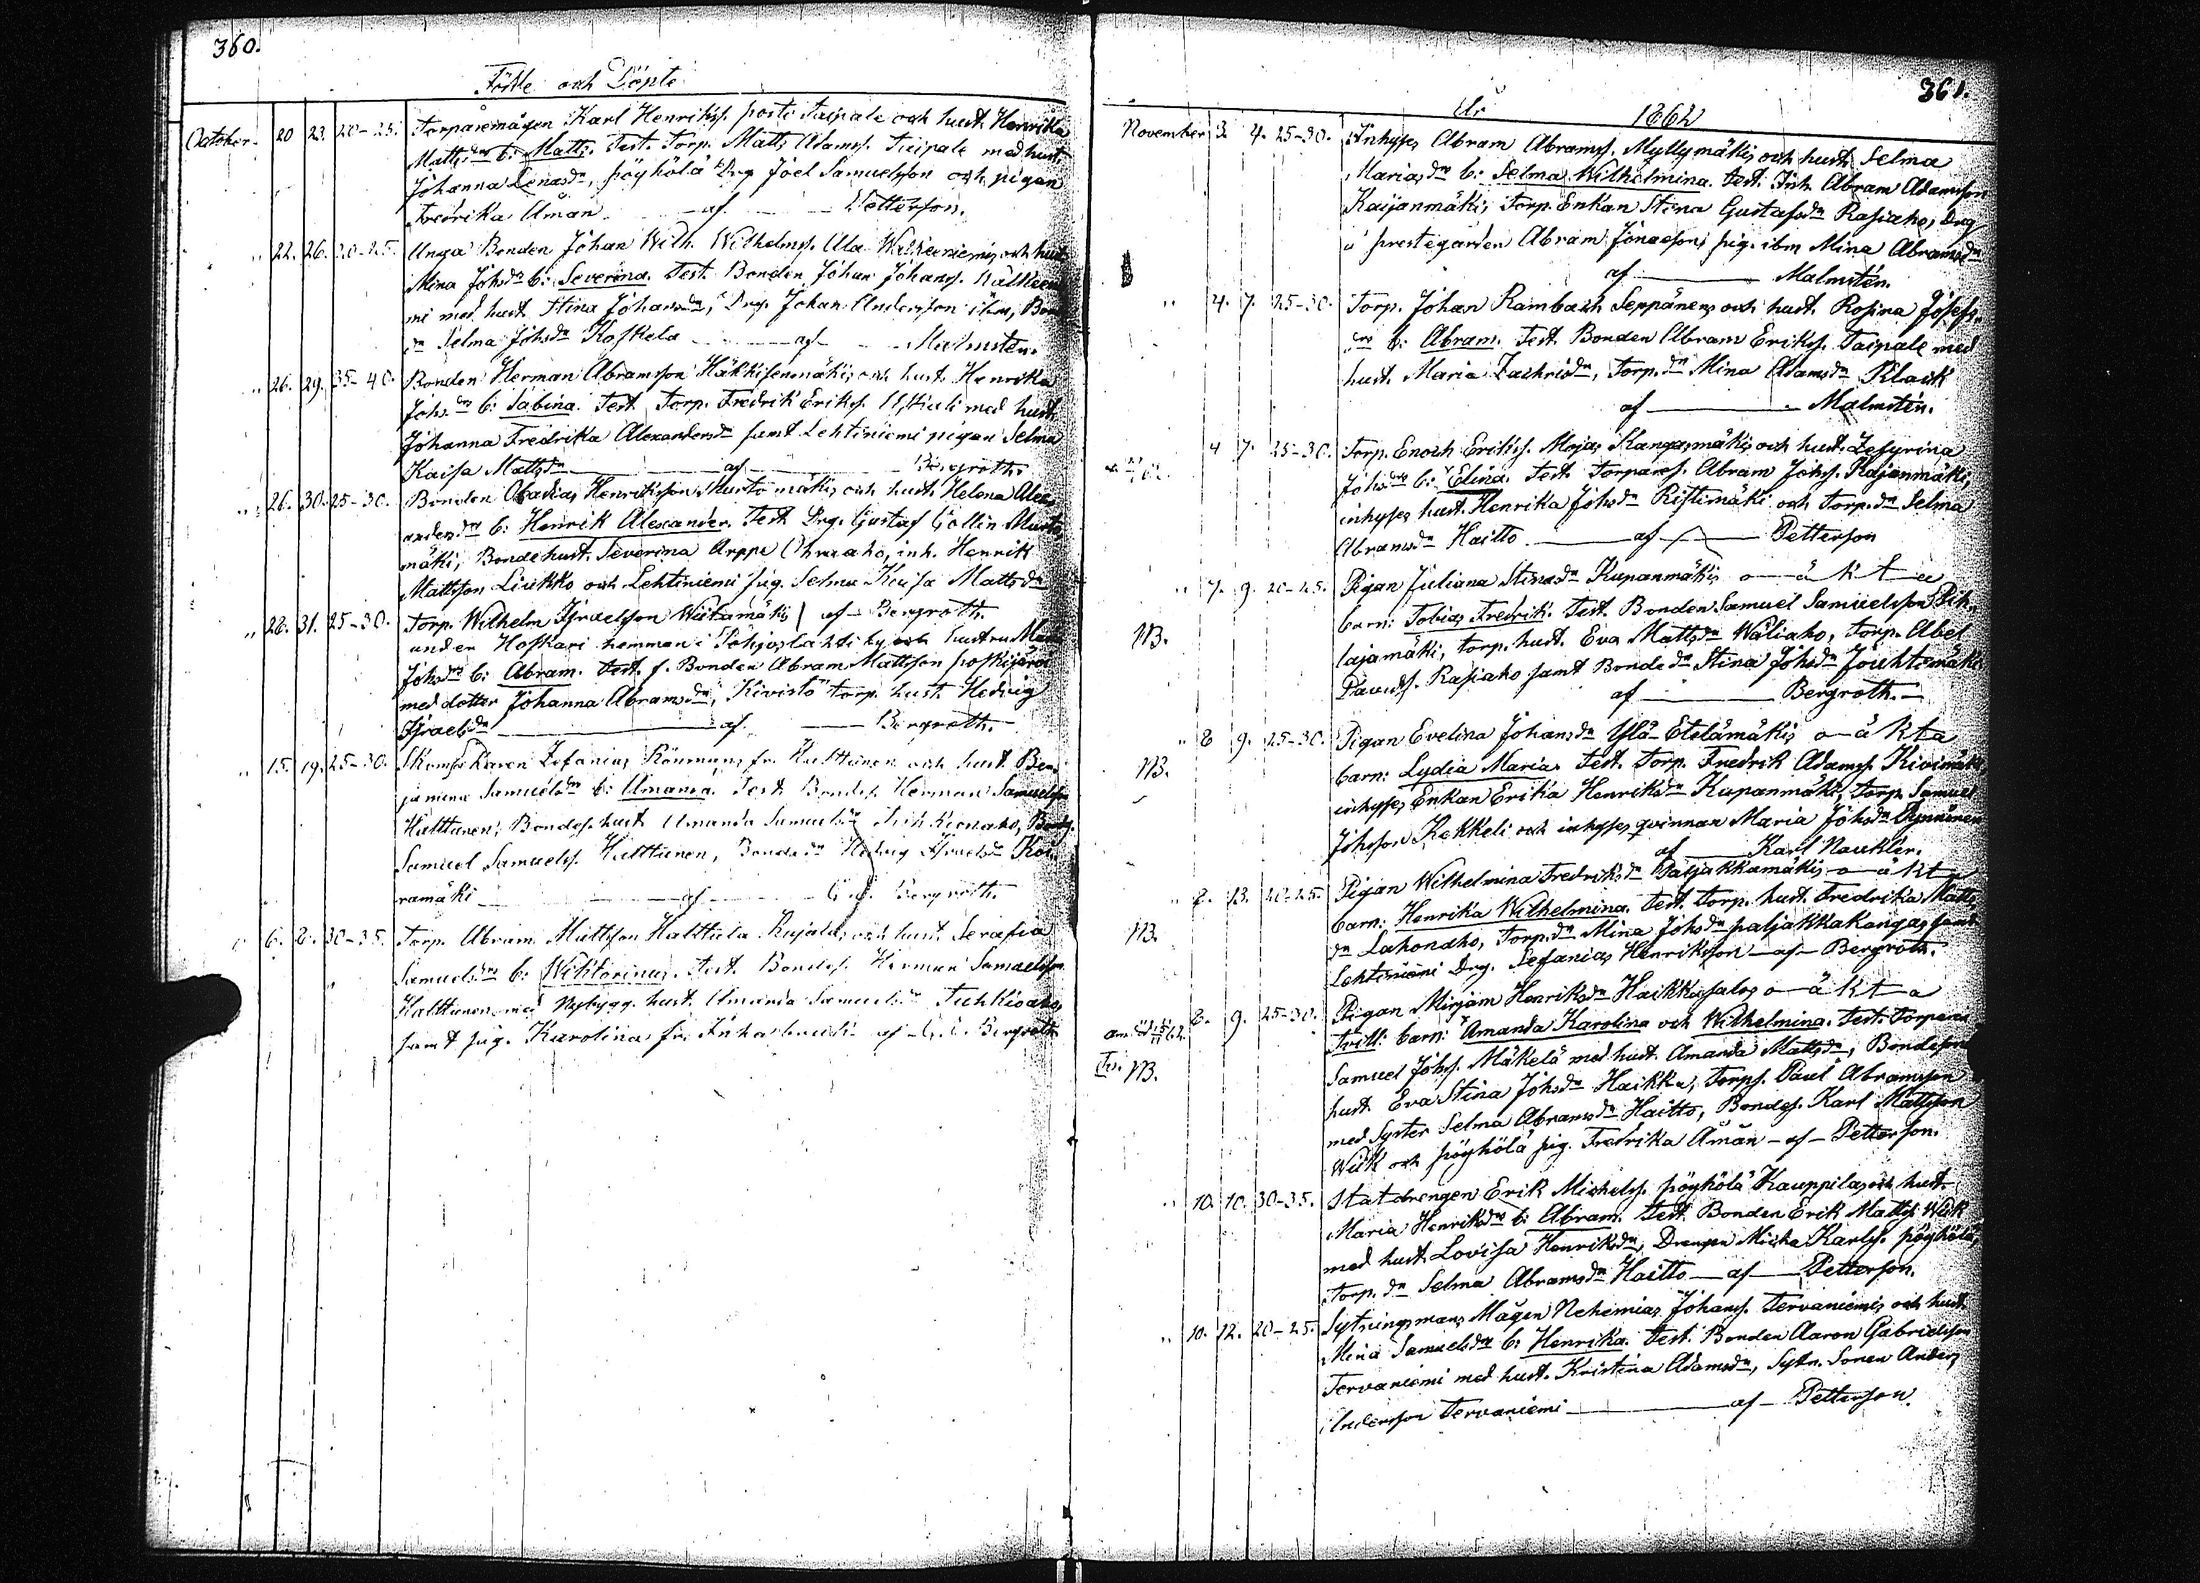 360.
Födde och Döpte
October. 20 23. 20-25. Torparemågen Karl Henrikss. posti Taipale och hust. Henrika
Matts dr b: Matts. Test. Torp. Matts Adamss. Taipale med hust.
Johanna Lenasdr, pöyhölä Drg Joel Samuelsson och pigan
Fredrika Åman af Petterson.
" 22. 26. 20-25. Unga Bonden Johan Wilh. Wilhelmss. Ala Walkeeniemi, och hust.
Mina Johsdr b: Severina. Test. Bonden Johan Johanss. Walkeenie
mi med hust. Stina Johansdr, Drg. Johan Andersson ibm, Bon
dr Selma Johsdr Koskela af Malmstén.
" 26. 29. 35-40. Bonden Herman Abramsson Häkkisenmäki, och hust. Henrika
Johs dr b: Sabina. Test. Torp. Fredrik Erikss. med hust.
Johanna Fredrika Alexandersdr samt Lehtiniemi pigan Selma
Kaisa Mattsdr af Bergroth.
" 26. 30. 25-30. Bonden Obadias Henriksson Mustomäki, och hust. Helena Alex
andersdr b: Henrik Alexander. Test. Drg. Gustaf Gollin Musto
mäki, Bondehust. Severina Arppe Ohraaho, inh. Henrik
Mattsson Liukko och Lehtiniemi pig. Selma Kaisa Mattsdr
" 28. 31. 25-30. Torp. Wilhelm Israelsson Wiitamäki, af Bergroth.
under Hoskari hemman i Pohjoslahti by och hustru Maria
Johsdr b: Abram. Test. f. Bonden Abram Mattsson poskijärvi
med dotter Johanna Abramsdr, Kivistö torp. hust. Hedvig
Israelsdr af Bergroth.
" 15. 19. 25-30. Skomakaren Zefanias Rönnman, fr. Hulttunen och hust. Ben
jamina Samuelsdr b: Amanda. Test. Bondes. Herman Samuelsson
Hulttunen, Bondes. hust. Amanda Samuelsdr Tuhkionaho, Bondes.
Samuel Samuelss. Hulttunen, Bonde dr Hedvig Israelsdr Koi
ramäki af C. E. Bergroth.
" 6. 8. 30-35. Torp. Abram Mattsson Halttula Rajala, och hust. Serafia
Samuelsdr b: Wiktorinus. Test. Bondes. Herman Samuelsson
Halttunen med Nybygg. hust. Amanda Samuelsdr Tuhkioaho
samt pig. Karolina fr. af C. E. Bergroth
361.
År 1862
November 3. 4. 25-30. Inhyses Abram Abramss. Myllymäki, och hust. Selma
Marias dr b: Selma Wilhelmina. Test. Inh. Abram Adamsson
Kaijanmäki, Torp. Enkan Stina Gustafsdr Rasiaho, Drg
å prestegården Abram Jonasson, pig. ibm Mina Abramsdr
af Malmstén.
" 4. 7. 25-30. Torp. Johan Rambach Seppänen, och hust. Rosina Josefs
dr b: Abram. Test. Bonden Abram Erikss. Taipale med
hust. Maria Zachrisdr, Torp. dr Mina Adamsdr Klack
af Malmstén.
4 7. 25-30. Torp. Enoch Erikss. Moja, Kangasmäki, och hust. Zefyrina
Johsdr b: Elina. Test. Torpares. Abram Johss. Kajanmäki,
inhyses hust. Henrika Johsdr Ristimäki och Torp. dr Selma
Abramsdr Haitto af Petterson
" 7. 9. 20-25. Pigan Juliana Stinasdr Kupanmäki, o-äkta
NB. barn: Tobias Fredrik. Test. Bonden Samuel Samuelsson Pih
lajamäki, Torp. hust. Eva Mattsdr Wäliaho, Torp. Abel
Davidss. Rasiaho samt Bonde dr Stina Johsdr Jouhtimäki
af Bergroth.
" 8 9. 25-30. Pigan Evelina Johansdr Ylä-Etelämäki, o-äkta
NB. barn: Lydia Maria. Test. Torp. Fredrik Adamss. Kivimäki
inhyses Enkan Erika Henriksdr Kupanmäki, Torp. Samuel
Johsson Kekkeli och inhyses qvinnan Maria Johsdr
af Karl Nauklér.
" 8. 13. 20-25. Pigan Wilhelmina Fredriksdr Paljakkamäki, o-äkta
NB. barn: Henrika Wilhelmina. Test. Torp. hust. Fredrika Matts
dr Lahonaho, Torp. dr Mina Johsdr paljakkakangas samt
Lehtiniemi Drg. Sefanias Henriksson af Bergroth.
8. 9. 25-30. Pigan Mirjam Henriksdr Haikkasalo, o-äkta
NB. tvill. barn: Amanda Karolina och Wilhelmina. Test. Torparen
Samuel Johss. Mäkelä med hust. Amanda Mattsdr, Bondeson
hust. Eva Stina Johsdr Haikka, Torps. Paul Abramsson
med Syster Selma Abramsdr Haitto, Bondes. Karl Mattsson
Wiik och pöyhölä pig. Fredrika Åman - af - Petterson.
" 10. 10. 30-35. Statdrengen Erik Michelss. pöyhölä Kauppila, och hust.
Maria Henriksdr b: Abram. Test. Bonden Erik Mattss. Wiik
med hust. Lovisa Henriksdr, Drengen Micka Karlss. pöyhölä,
Torp. dr Selma Abramsdr Haitto - af - Petterson.
" 10. 12. 20-25. Sytningsmans Mågen Nehemias Johanss. Tervaniemi, och hust.
Mina Samuelsdr b: Henrika. Test. Bonden Aaron Gabrielsson
Tervaniemi med hust. Kristina Adamsdr, Sytn. Sonen Anders
Andersson Tervaniemi af - Petterson.